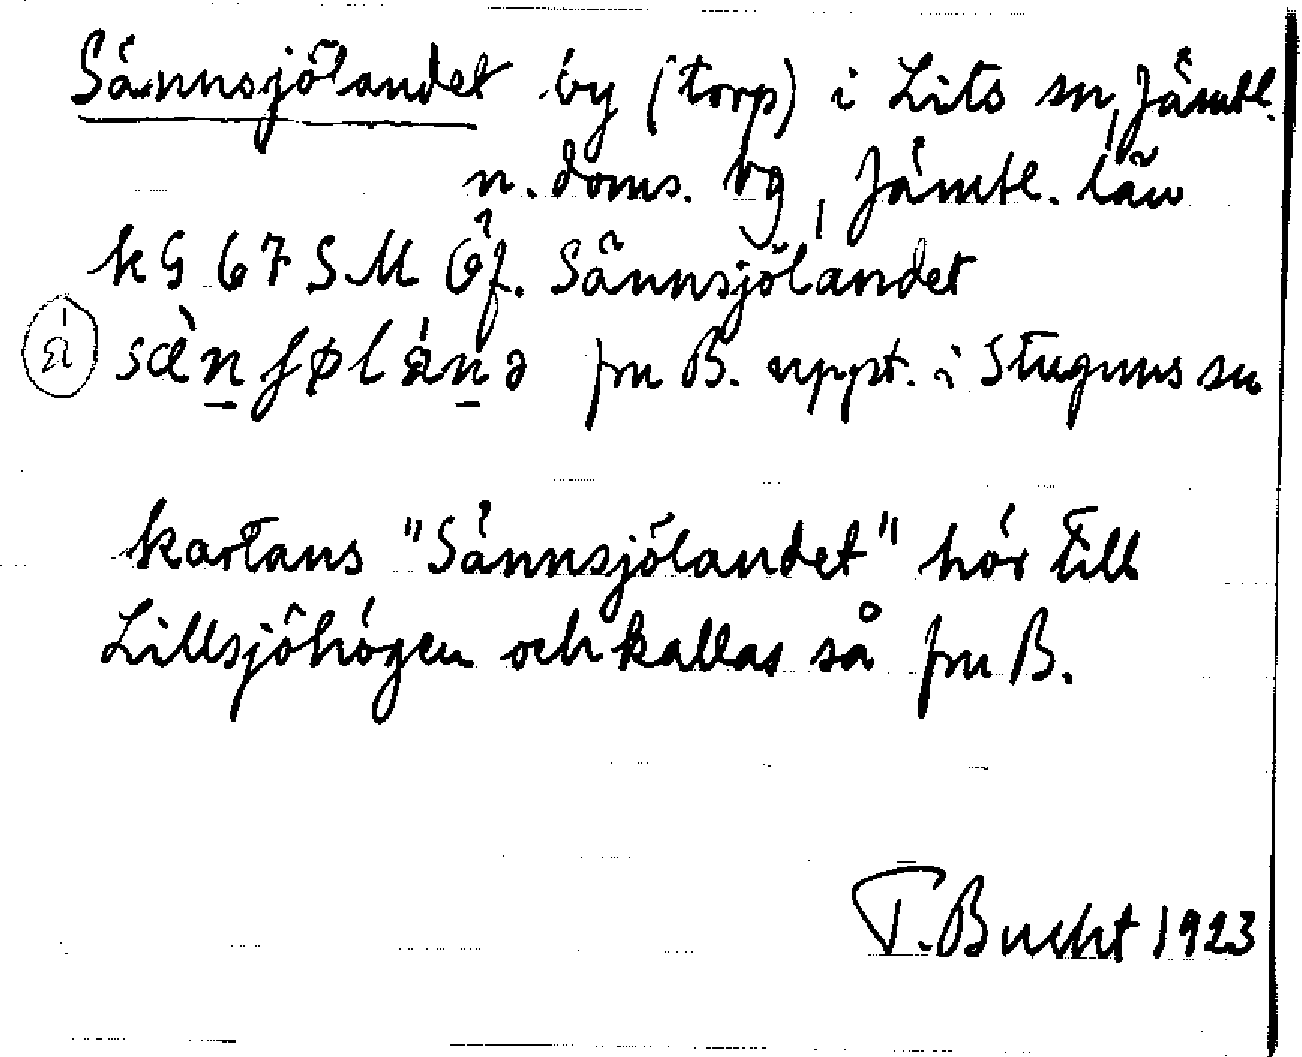 Sännsjölandet by (torp) i Lits sn, Jämtl.
n. doms. bg, Jämtl. län
kG 67 SM Öf. Sännsjölandet
sæ̀n̠ʃøla̍n̠ə fru B. uppt. i Stuguns sn
kartans "Sännsjölandet" hör till
Lillsjöhögen och kallas så fru B.
T. Bucht 1923